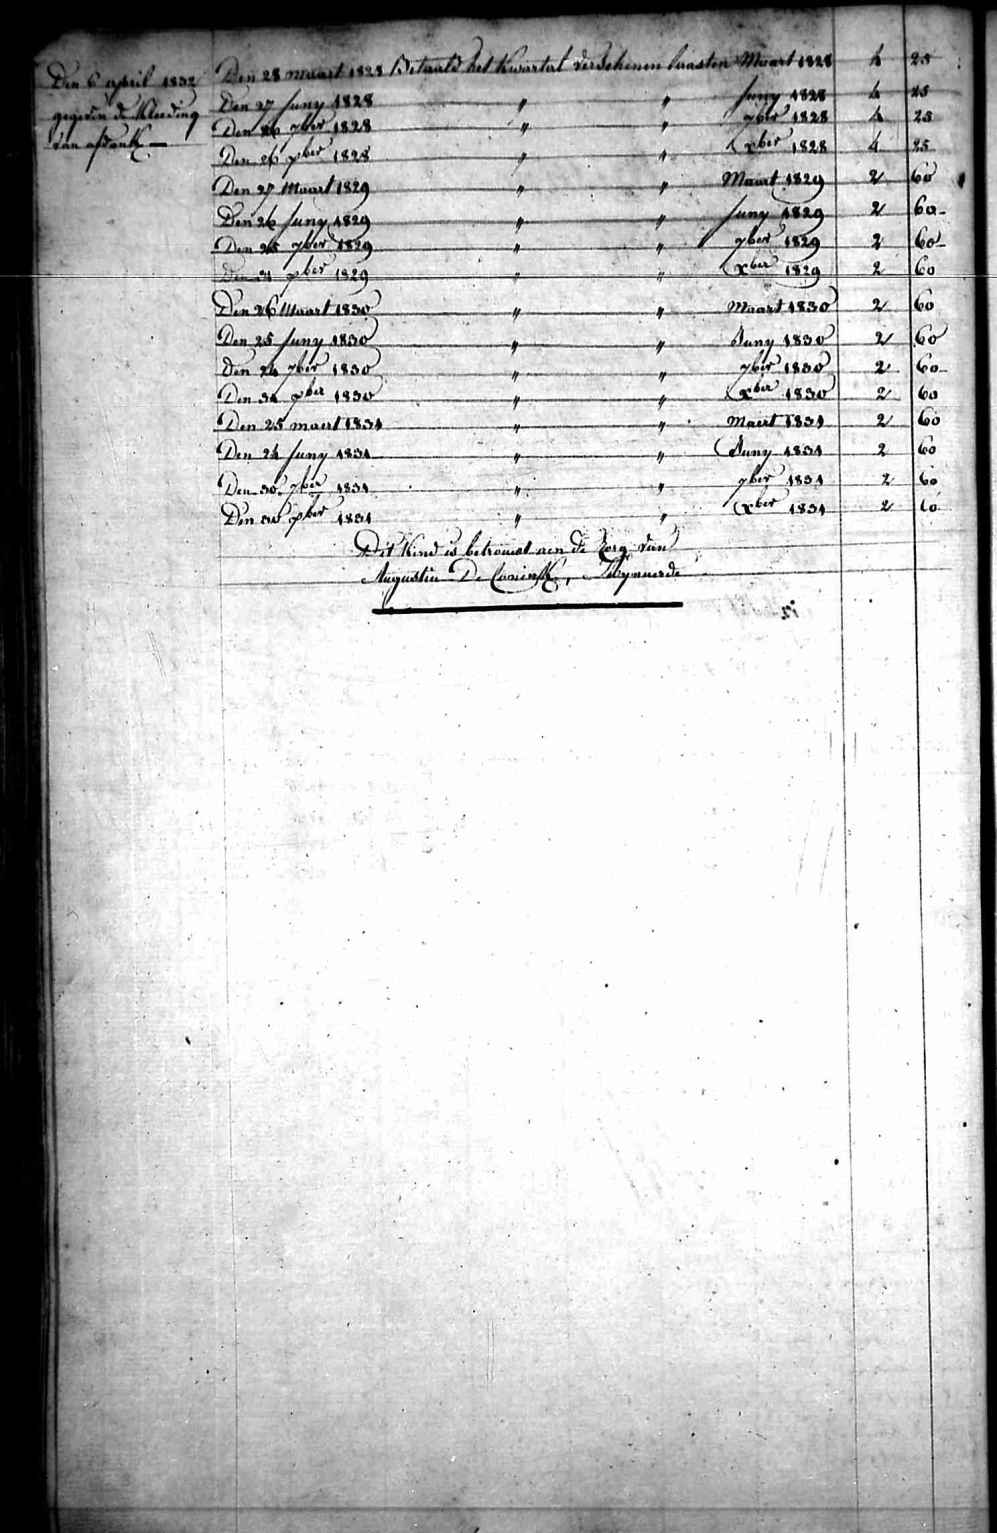 Den 6 april 1832
gegeven de Kleeding
van afdank —
Den 28 maart 1828 Betaald het Kwartal verschenen laasten Maart 1828 4 25
Den 27 Juny 1828 " " Juny 1828 4 25
Den 26 7ber 1828 " " 7ber 1828 4 25
Den 26 xber 1828 " " xber 1828 4 25
Den 27 Maart 1829 " " Maart 1829 2 60
Den 26 Juny 1829 " " Juny 1829 2 60
Den 25 7ber 1829 " " 7ber 1829 2 60
Den 31 xber 1829 " " xber 1829 2 60
Den 26 Maart 1830 " " Maart 1830 2 60
Den 25 Juny 1830 " " Juny 1830 2 60
Den 24 7ber 1830 " " 7ber 1830 2 60
Den 31 xber 1830 " " xber 1830 2 60
Den 25 maert 1831 " " Maert 1831 2 60
Den 24 Juny 1831 " " Juny 1831 2 60
Den 30 7ber 1831 " " 7ber 1831 2 60
Den 30 xber 1831 " " xber 1831 2 60
Dit Kind is betrouwt aen de Zorg van
Augustin De Coninck,